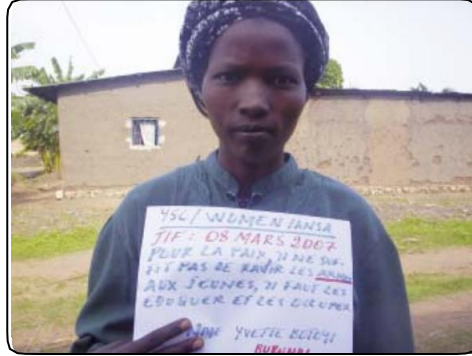 YSC/WOMEN IANSA
JIF: 08 MARS 2007
POUR LA PAIX, IL NE SUF-
FIT PAS DE RAVIR LES ARMES
AUX JEUNES, IL FAUT LES
EDUQUER ET LES OCCUPER
YVETTE
BURUNDI